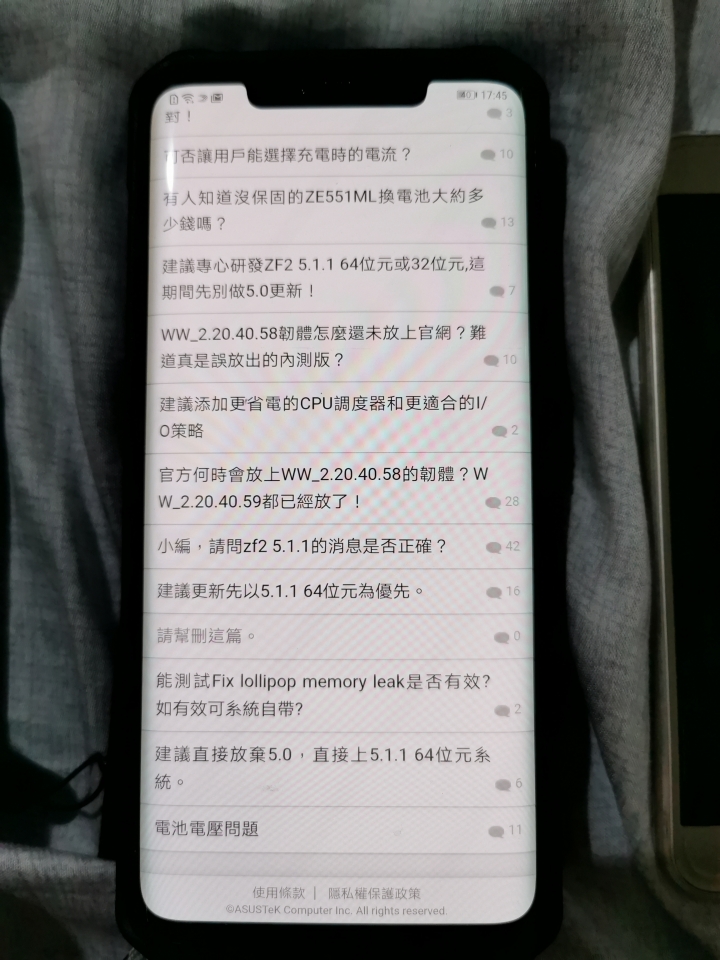 17:45
對！
3
可否讓用戶能選擇充電時的電流？
10
有人知道沒保固的ZE551ML換電池大約多
少錢嗎？
13
建議專心研發ZF2 5.1.1 64位元或32位元,這
期間先別做5.0更新！
7
WW_2.20.40.58韌體怎麼還未放上官網？難
道真是誤放出的內測版？
10
建議添加更省電的CPU調度器和更適合的I/
O策略
2
官方何時會放上WW_2.20.40.58的韌體？W
W_2.20.40.59都已經放了！
28
小編，請問zf2 5.1.1的消息是否正確？
42
建議更新先以5.1.1 64位元為優先。
16
請幫刪這篇。
0
能測試Fix lollipop memory leak是否有效?
如有效可系統自帶?
2
建議直接放棄5.0，直接上5.1.1 64位元系
統。
6
電池電壓問題
11
使用條款｜ 隱私權保護政策
©ASUSTeK Computer Inc. All rights reserved.